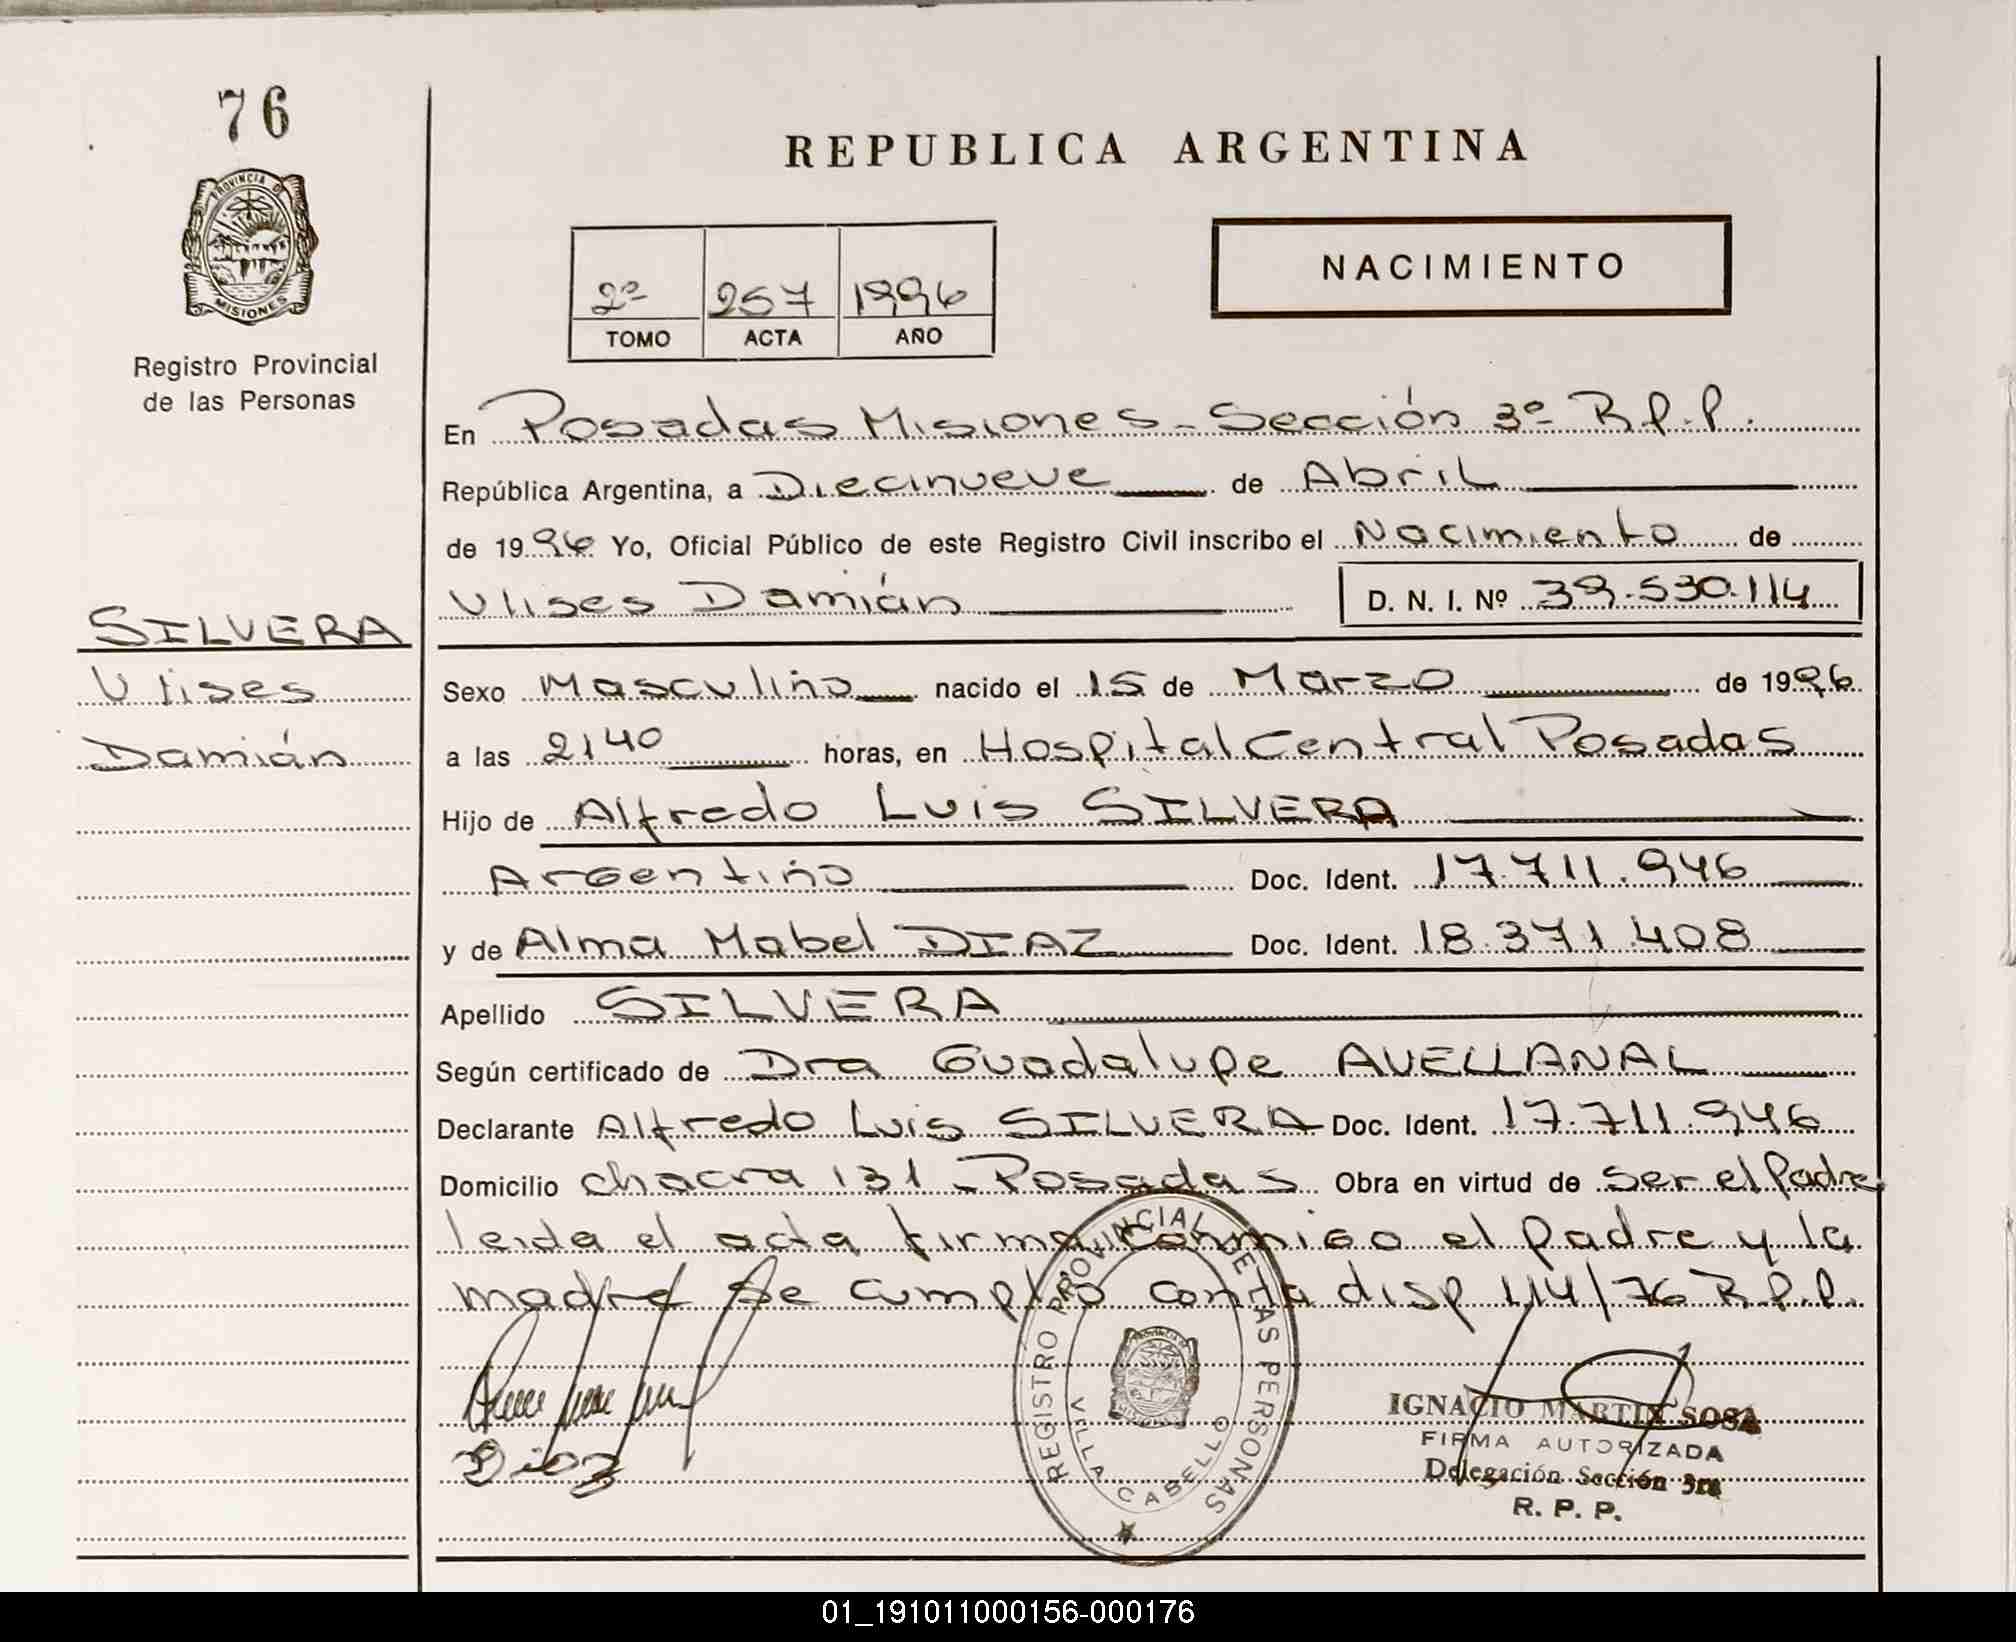 76
PROVINCIA DE
MISIONES
Registro Provincial
de las Personas
SILVERA
Ulises
Damián
REPUBLICA ARGENTINA
2º 257 1996
TOMO ACTA AÑO
NACIMIENTO
En Posadas Misiones - Sección 3º R.P.P.
República Argentina, a Diecinueve de Abril
de 1996 Yo, Oficial Público de este Registro Civil inscribo el Nacimiento de
Ulises Damián D. N. I. Nº 39.530.114
Sexo Masculino nacido el 15 de Marzo de 1996
a las 2140 horas, en Hospital Central Posadas
Hijo de Alfredo Luis SILVERA
Argentino Doc. Ident. 17.711.946
y de Alma Mabel DIAZ Doc. Ident. 18.371.408
Apellido SILVERA
Según certificado de Dra Guadalupe AVELLANAL
Declarante Alfredo Luis SILVERA Doc. Ident. 17.711.946
Domicilio chacra 131 - Posadas Obra en virtud de ser el Padre
leida el acta firma conmigo el padre y la
madre se cumplio con la disp 114/76 R.P.P.
Diaz
REGISTRO PROVINCIAL DE LAS PERSONAS
VILLA CABELLO
IGNACIO MARTIN SOSA
FIRMA AUTORIZADA
Delegación Sección 3ra
R. P. P.
01_191011000156-000176